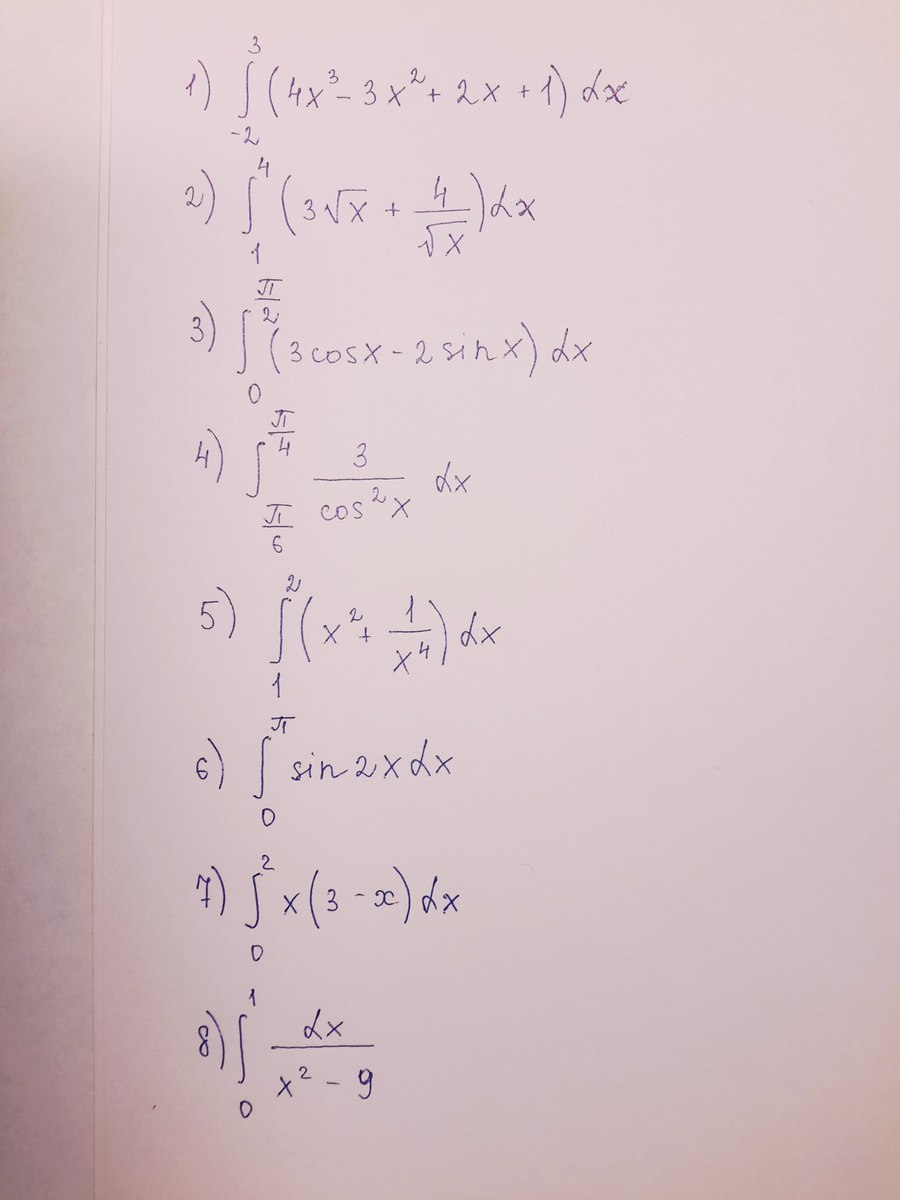 1) ∫₋₂³ (4x³ - 3x² + 2x + 1) dx
2) ∫₁⁴ (3√x + 4/√x) dx
3) ∫₀^(π/2) (3cosx - 2sinx) dx
4) ∫_(π/6)^(π/4) 3/cos²x dx
5) ∫₁² (x² + 1/x⁴) dx
6) ∫₀^π sin2xdx
7) ∫₀² x(3 - x) dx
8) ∫₀¹ dx/(x² - 9)